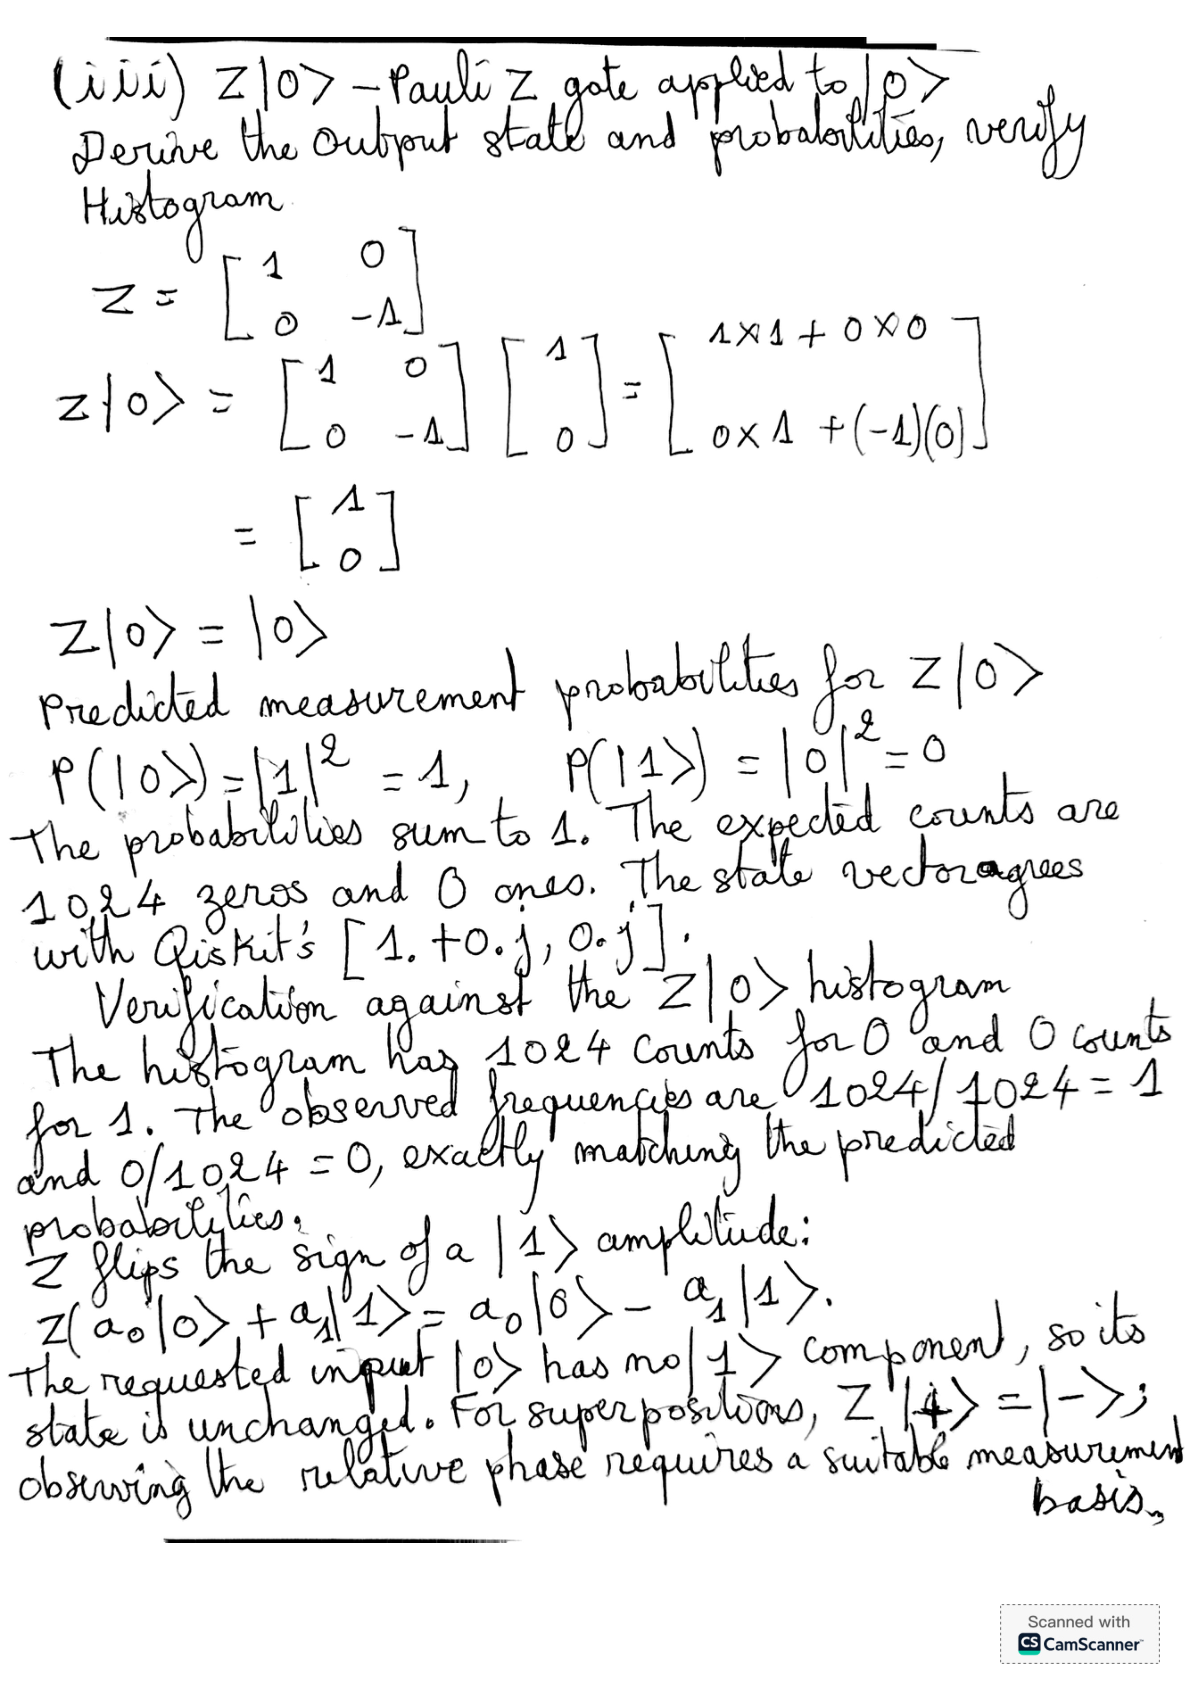 (iii) Z|0> - Pauli Z gate applied to |0>
Derive the output state and probabilities, verify
Histogram
Z = [1 0
0 -1]
Z|0> = [1 0
0 -1] [1
0] = [1×1 + 0×0
0×1 + (-1)(0)]
= [1
0]
Z|0> = |0>
Predicted measurement probabilities for Z|0>
P(|0>) = |1|² = 1, P(|1>) = |0|² = 0
The probabilities sum to 1. The expected counts are
1024 zeros and 0 ones. The state vector agrees
with Qiskit's [1. +0.j, 0.j].
Verification against the Z|0> histogram
The histogram has 1024 counts for 0 and 0 counts
for 1. The observed frequencies are 1024/1024 = 1
and 0/1024 = 0, exactly matching the predicted
probabilities.
Z flips the sign of a |1> amplitude:
Z(a₀|0> + a₁|1> = a₀|0> - a₁|1>.
The requested input |0> has no |1> component, so its
state is unchanged. For superpositions, Z |+> = |->;
observing the relative phase requires a suitable measurement
basis.
Scanned with
CS CamScanner